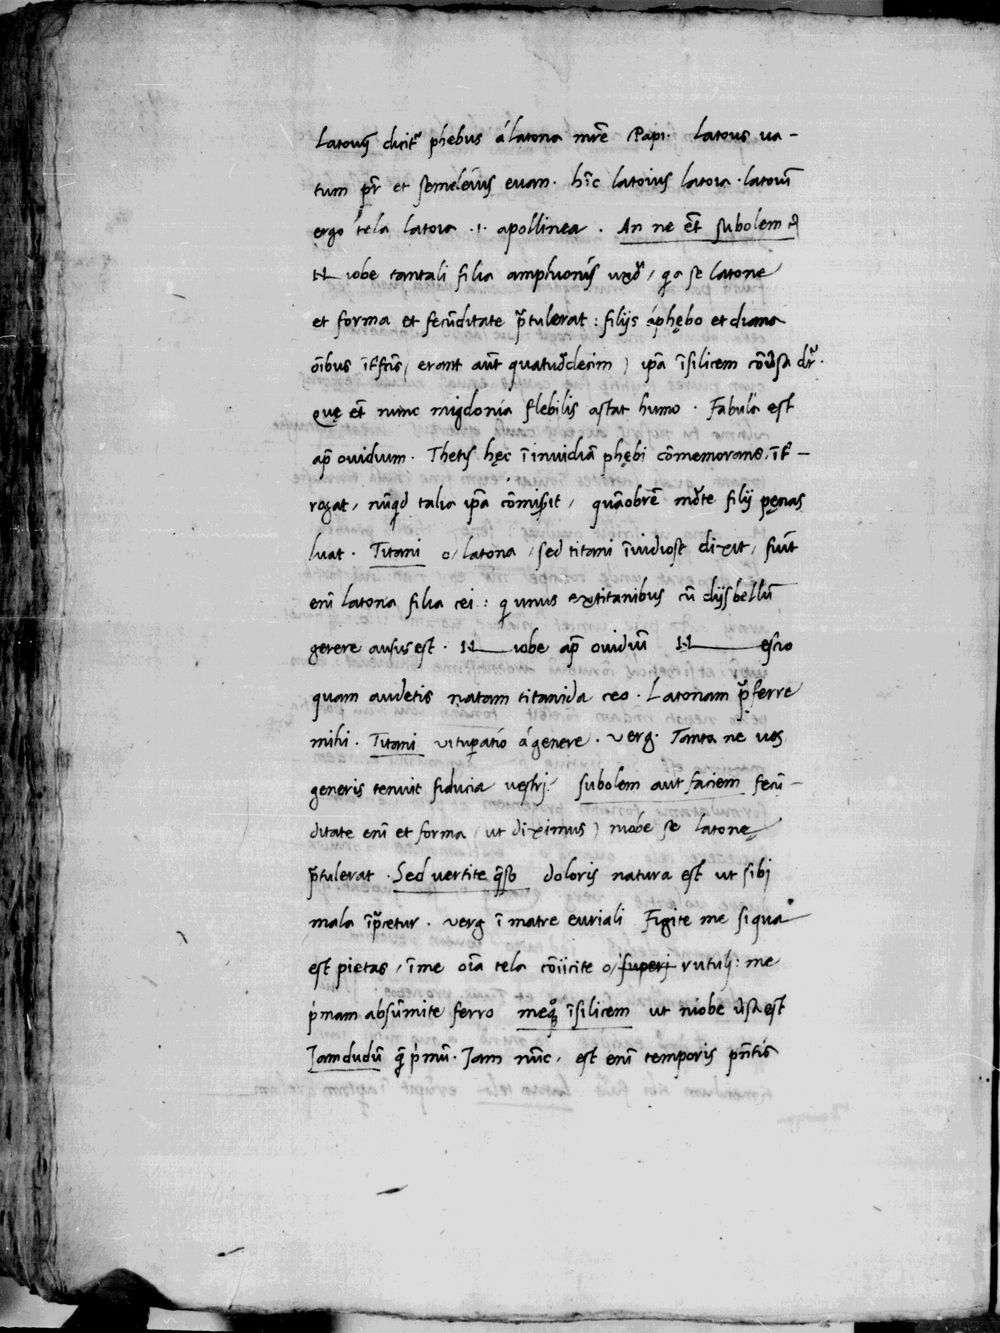 Latouꝰ dicit᷑ phebus á latona mr̄e Papi. Latous ua-
tum pr̄ et semeleius euan. hīc latoius latoia. latoiū
ergo tela latoia .i. apollinea. An ne ēt subolem
Niobe tantali filia amphionis, q̄ se latone
et forma et fecūditate p̄tulerat: filijs á phębo et diana
oībus īt̄fctis, erant aūt quatuordecim) ip̄a ī silicem cōuersa dr̄.
Quę ēt nunc migdonia flebilis astat humo. Fabula est
ap̄ ouidium. Thetis hęc ī inuidiā phębi cōmemorans, īt̄-
rogat, nūqd talia ip̄a cōmisit, quāobrē morte filij pęnas
luat. Titani o, latona, sed titani īuidiose dixit, fuit
eni latona filia cei: q unus ex titanibus cū dijs bellū
gerere ausus est. Niobe ap̄ ouidiū Nescio
quam audetis natam titanida ceo. Latonam p̄ferre
mihi. Titani uitup̄atio á genere. Verg. Tanta ne uos
generis tenuit fiducia uestrj. subolem aut faciem fecū-
ditate eni et forma (ut diximus) niobe se latonę
p̄tulerat. Sed uertite q̄so doloris natura est ut sibi
mala īp̄cetur. Verg ī matre euriali Figite me siqua
est pietas, ī me oīa tela cōiicite o, superj rutulj: me
p̍mam absūmite ferro meq̨ ī silicem ut niobe uersa est
Jamdudū q̄ p̍mū. Jam nūc, est eni temporis pn̄tis